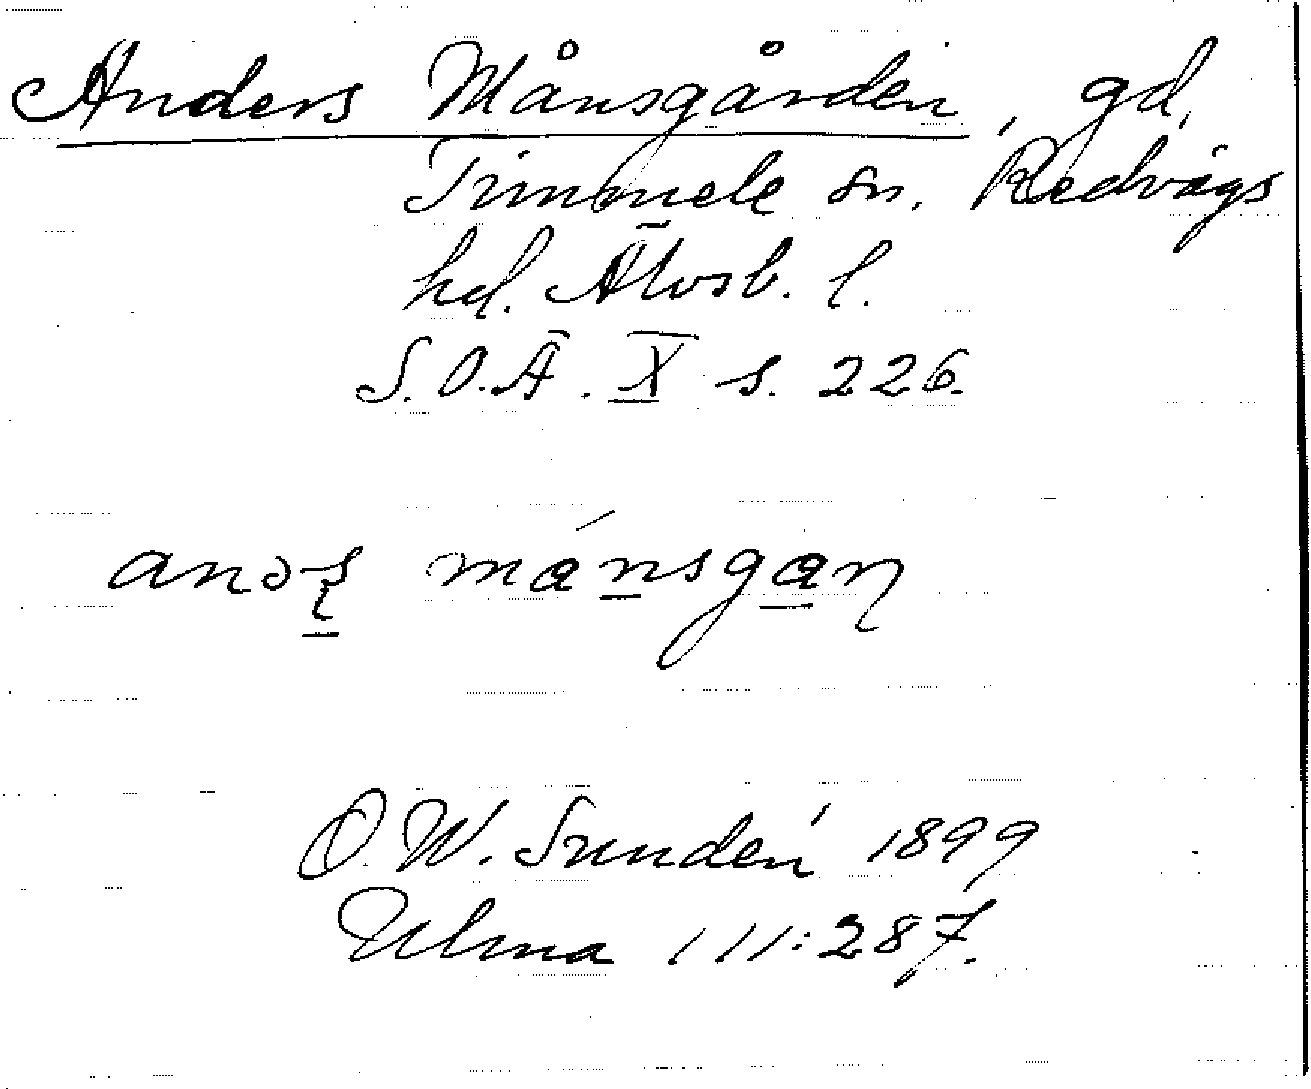 Anders Månsgården, gd,
Timmele sn. Redvägs
hd. Älvsb. l.
S.O.Ä. X s. 226.
månsgaɳ
O.W. Sundén 1899
Ulma 111:287.